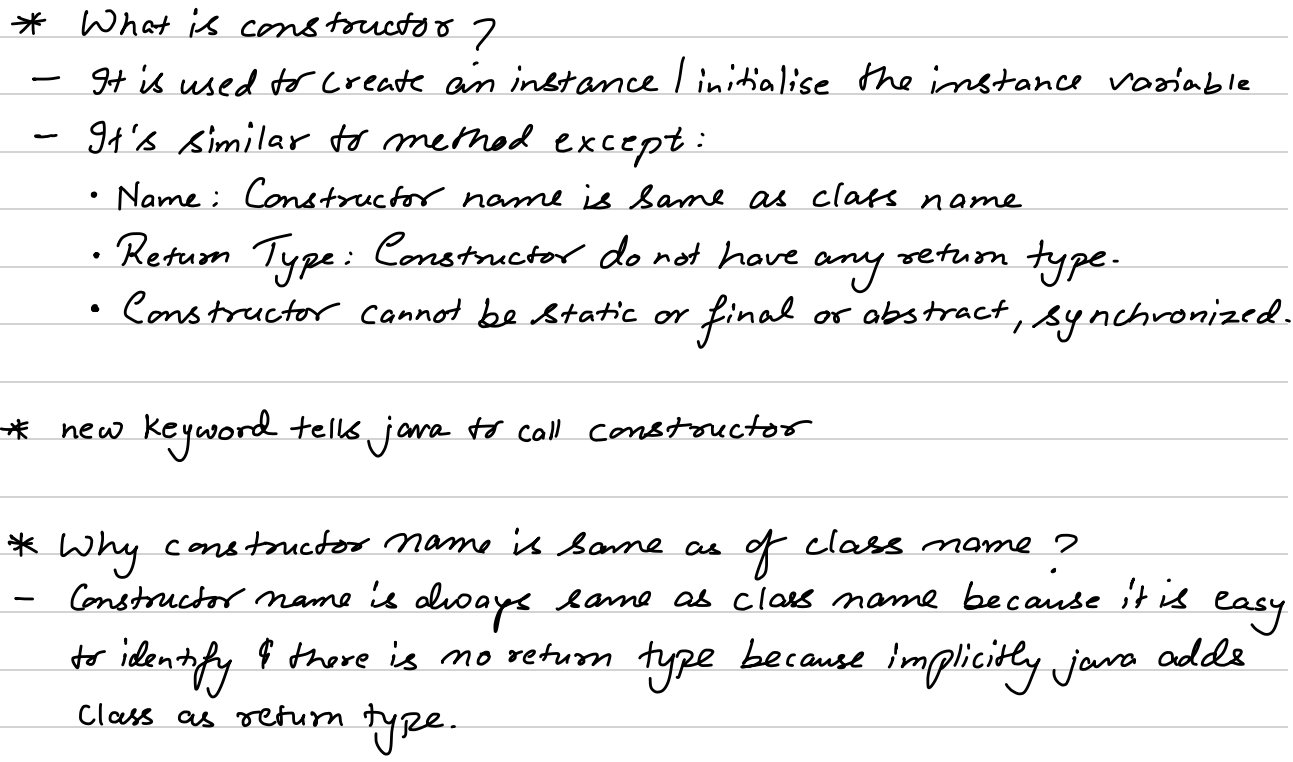 * What is constructor ?
- It is used to create an instance / initialise the instance variable
- It's similar to method except :
• Name : Constructor name is same as class name
• Return Type : Constructor do not have any return type.
• Constructor cannot be static or final or abstract, synchronized.
* new keyword tells java to call constructor
* Why constructor name is same as of class name ?
- Constructor name is always same as class name because it is easy
to identify & there is no return type because implicitly java adds
Class as return type.